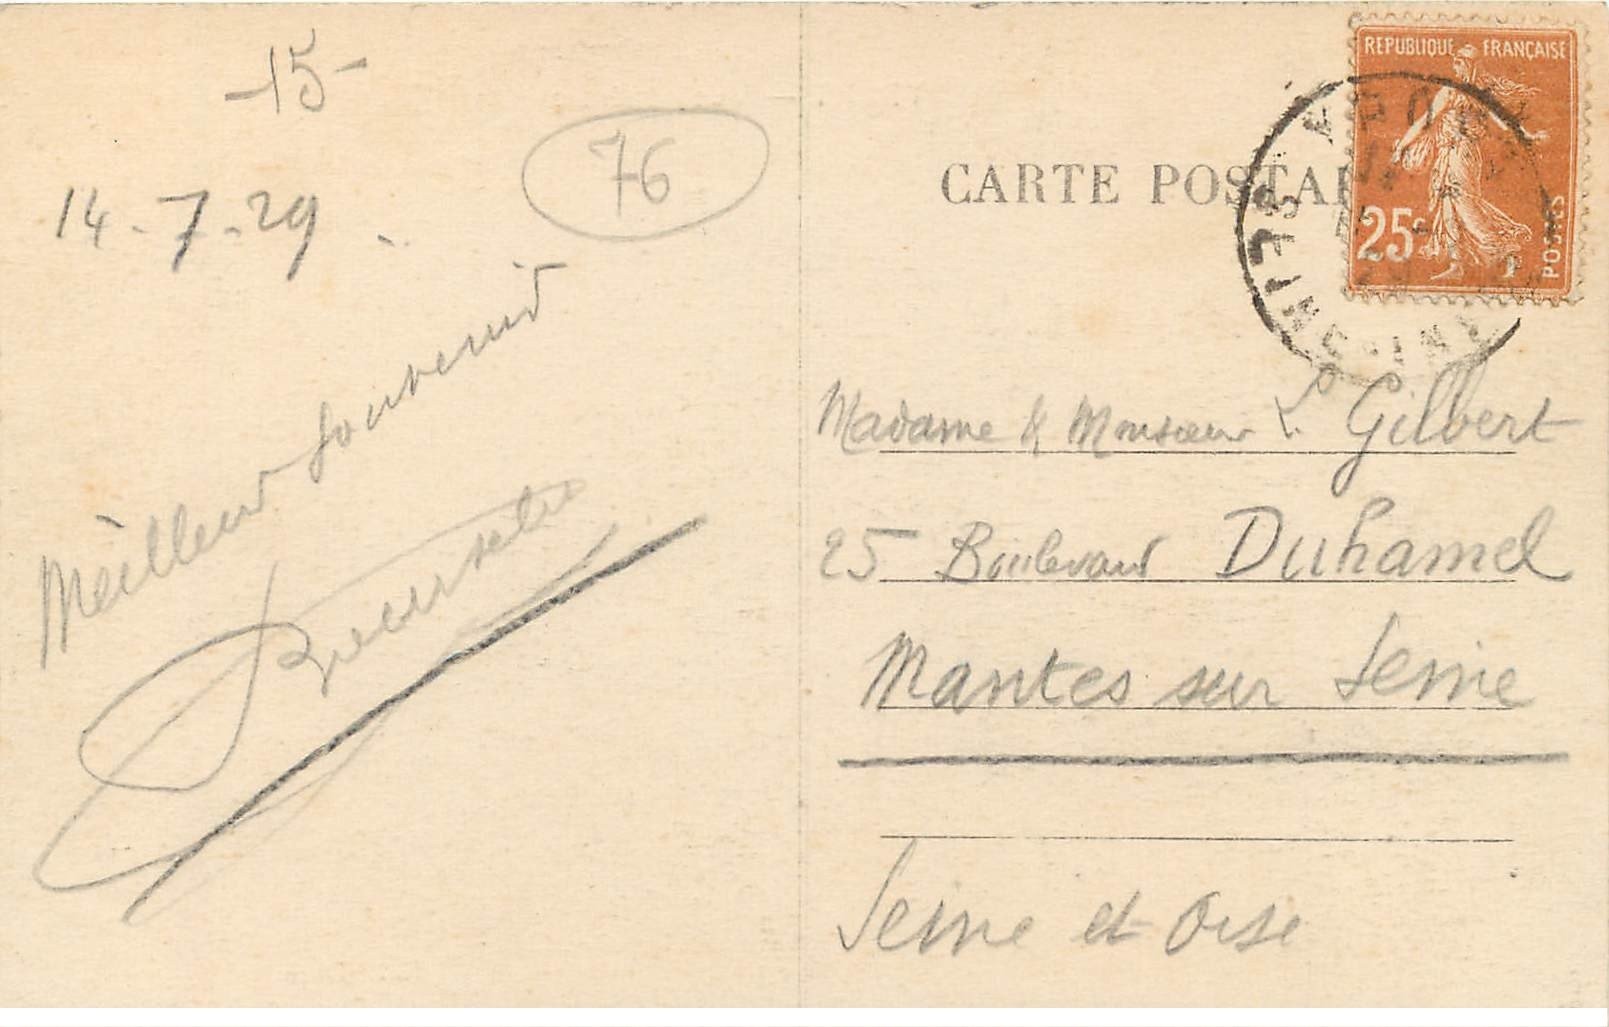 -15-
76
14-7-29
Meilleur souvenir
CARTE POSTA
REPUBLIQUE FRANÇAISE
25c
POSTES
Madame & Monsieur L. Gilbert
25 Boulevard Duhamel
Mantes sur Seine
Seine et Oise